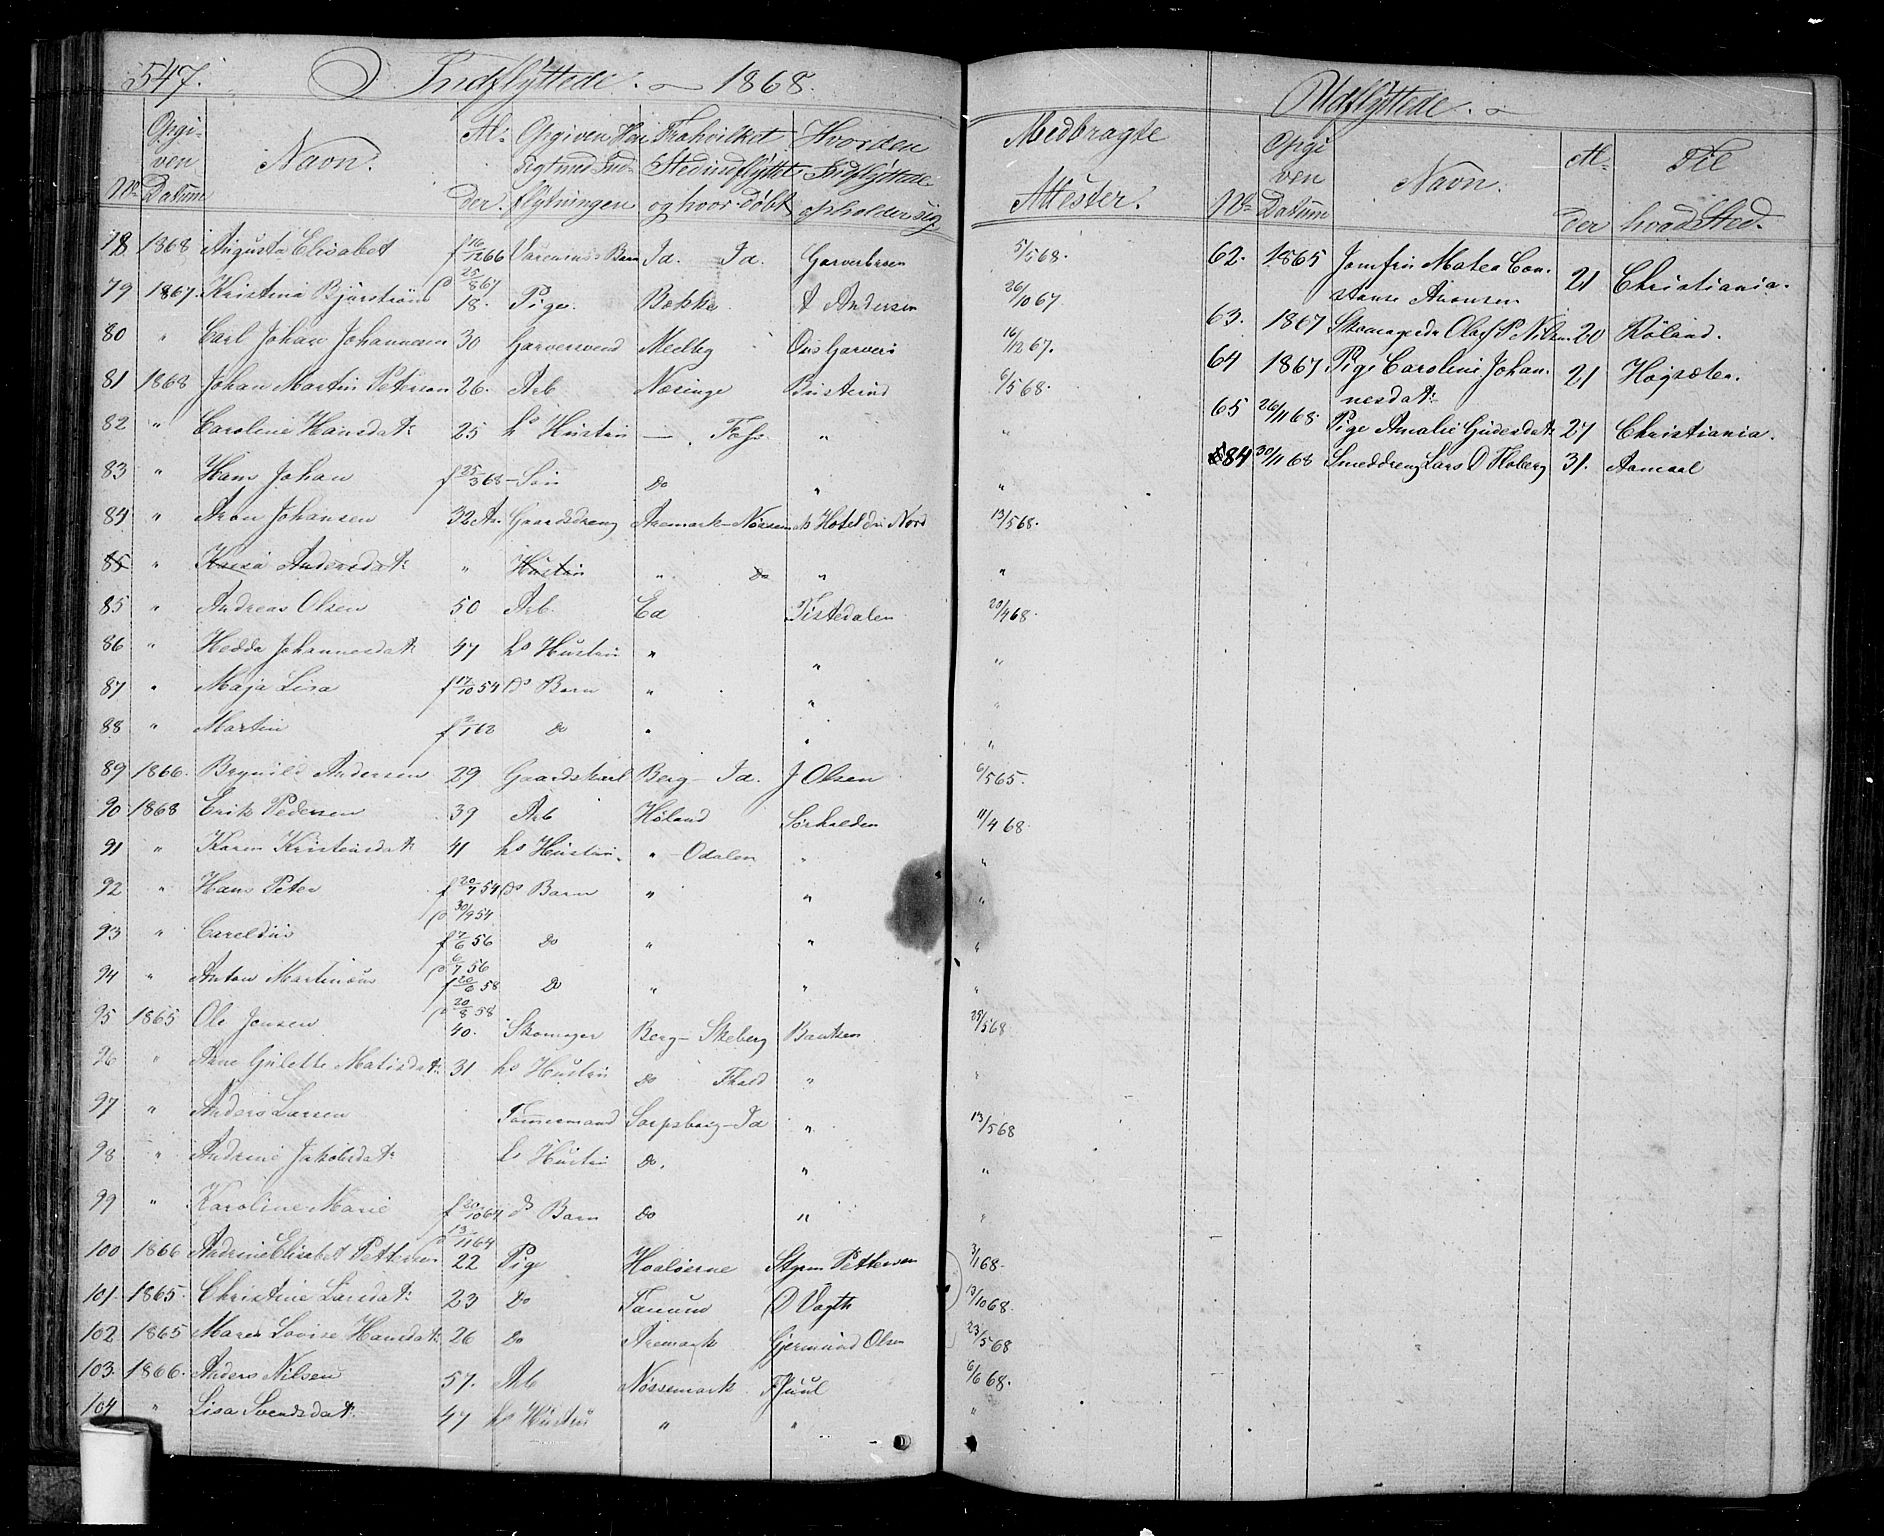 547. Indflyttede. 1868.
Opgiven Datum
Nr Navn. Alder. Opgiven Hensigt med Indflytningen Fra hvilket Sted indflyttet og hvor døbt Hvor den Indflyttede opholder sig Medbragte Attester.
78 1868 Augusta Elisabet f 16/12 66 Barn Id. Id. Garverbroen 5/5 68.
p 25/8 67
79 1867. Kristina Bjørstrøm 18. Pige. Bakke A Andersen 26/10 67
80 " Carl Johan Johannesen 30 Garversvend Medby Garveri 16/12 67.
81 1868 Johan Martin Peterson 26. Arb Næsinge 6/5 68.
82 " Caroline Hansdatr 25 hs Hustru — . Foss " "
83 " Hans Johan f 25/3 68 - Søn do " "
84 " Aron Johansen 32 Aar Gaardsdreng Aremark - Hotel du Nord 13/5 68.
85 " Andersdatr " Hustru " do " "
85 " Andreas Olsen 50 Arb. Ed Tistedalen 20/4 68.
86 " Hedda Johannesdatr 47 hs Hustru " " "
87 " Maja Lisa f 17/10 54 ds Barn " " "
88 " Martin f 2/1 62 do " " "
89 1866. Brynild Andersen 29 Gaardskarl Berg - Id. J Olsen 6/5 65.
90 1868 Erik Pedersen 39 Arb Høland Sørhalden 11/4 68.
91 " Karen Kristensdatr 41 hs Hustru. " - Odalen " "
92 " Hans Peter f 20/7 54 ds Barn " " "
p 30/9 54
93 " f 7/6 56 do " " "
p 6/7 56
94 " Anton Martinius f 20/6 58 do " " "
p 20/8 58
95 1865 Ole Jensen 40. Skomager Berg - Skeberg 25/5 68
96 " Matisdatr 31 hs Hustru do Fhald " "
97 " Anders Larsen Tømmermand Sarpsborg - Id " 13/5 68
98 " Andrine Jakobsdatr hs Hustru do. " "
99 " Karoline Marie f 20/10 64 ds Barn do " "
p 13/11 64
100 1866 Andrine Elisabet Pettersen 22 Pige Hvaløerne Styrm Pettersen 3/1 68.
101 1865. Christine Larsdatr 23 do Tanum D Vogth 13/10 68.
102 1865 Maren Lovise Hansdatr 26 do Aremark Gjermund Olsen 23/5 68
103. 1866. Anders Nilsen 57. Arb Nössemark F Juul 6/6 68.
104 " Lisa Svendsdatr 47 hs Hustru " " "
Udflyttede.
Nr Opgiven Datum Navn. Alder Til hvad Sted.
62. 1865 Jomfru Matea Constanse Aronsen 21 Christiania.
63. 1867 Olaf P. Nilsen 20 Høland.
64 1867 Pige Caroline Johannesdatr 21 Høgsæter.
65 26/11 68. Pige Amalie Gudersdatr 27 Christiania.
84 30/11 68 Smeddreng Lars O Floberg 31. Aamaal